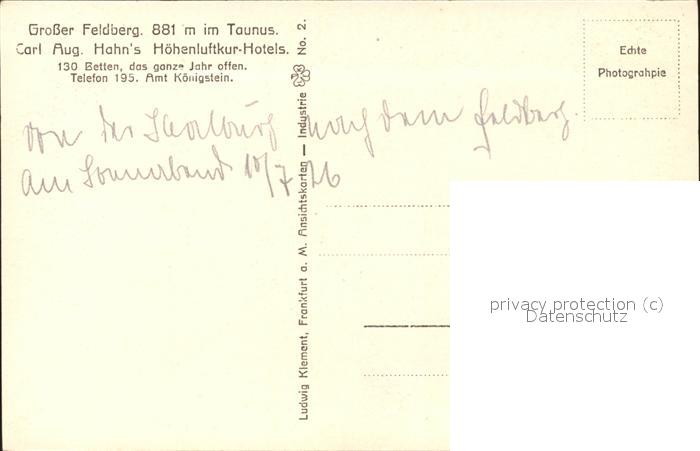 Großer Feldberg. 881 m im Taunus.
Carl Aug. Hahn's Höhenluftkur-Hotels.
130 Betten, das ganze Jahr offen.
Telefon 195. Amt Königstein.
Ludwig Klement, Frankfurt a. M. Ansichtskarten — Industrie No. 2.
Echte
Photograhpie
von der Saalburg nach dem Feldberg.
am Sonnabend 10/7 26
privacy protection (c)
Datenschutz